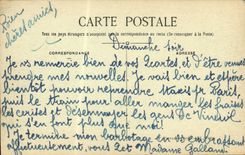 Bien
chères amies
CARTE POSTALE
Tous les pays étrangers n'acceptent pas la correspondance au recto (Se renseigner à la Poste)
CORRESPONDANCE
ADRESSE
Dimanche soir
Je vs remercie bien de vos 2 cartes et d'être venues
prendre mes nouvelles. Je vais bien et espère
bientôt pouvoir reprendre Paris,
puis le train pour aller manger les fraises
les cerises et les gens de Vineuil
qui s'en font plus que moi
Je termine mon barbotage en vs embrassant
affectueusement, vous
Madame Galland